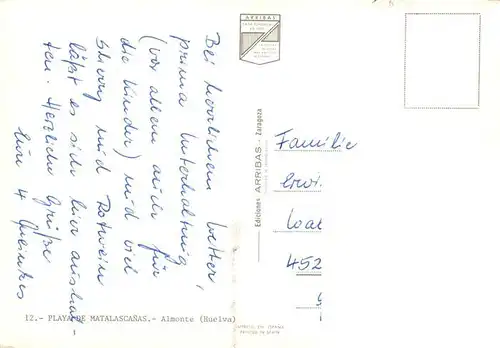 Bei herrlichem Wetter,
prima Unterhaltung
(vor allem auch für
die Kinder) und viel
Sherry und Rotwein
läßt es sich hier aushal-
ten. Herzliche Grüße
Eure 4
ARRIBAS
Ediciones ARRIBAS.- Zaragoza
Familie
Erwi
Wal
452
12.- PLAYA DE MATALASCAÑAS.- Almonte (Huelva)